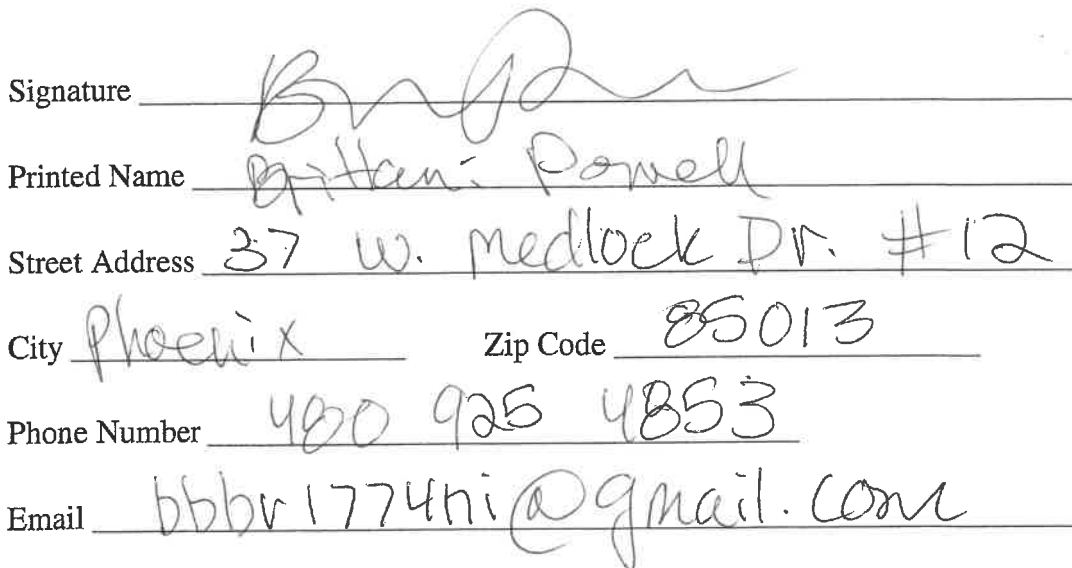 Signature
Printed Name Brittani Powell
Street Address 37 W. Medlock Dr. #12
City Phoenix Zip Code 85013
Phone Number 480 925 4853
Email bbbr1774ni@gmail.com